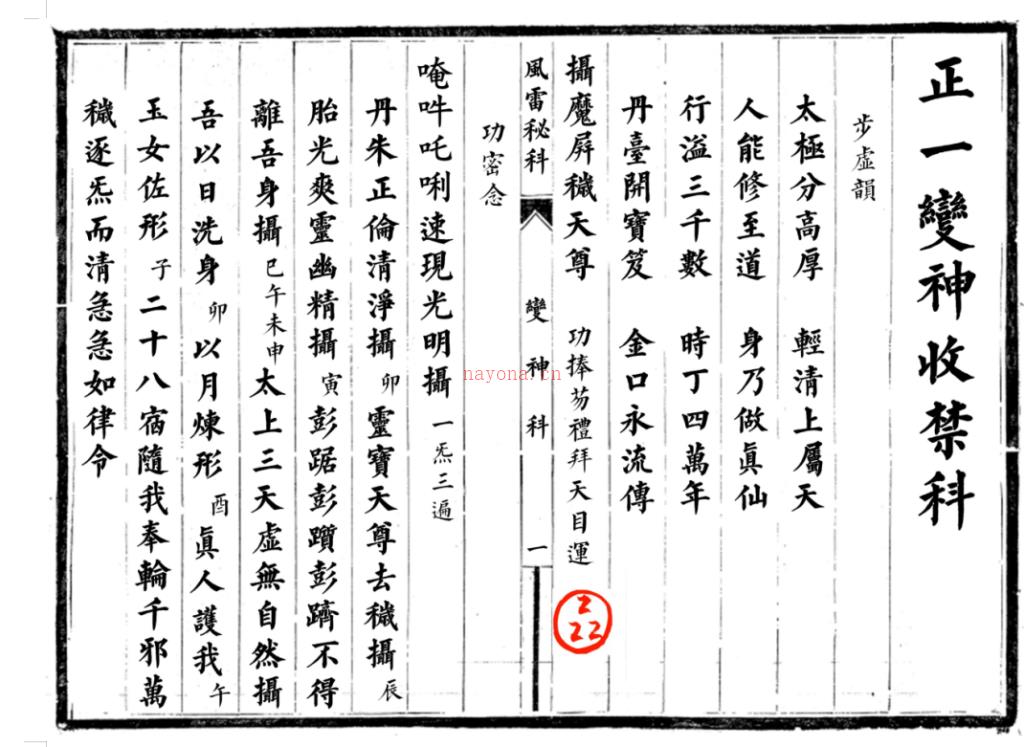 正一變神收禁科
步虛韻
太極分高厚 輕清上屬天
人能修至道 身乃做眞仙
行溢三千數 時丁四萬年
丹臺開寶笈 金口永流傳
攝魔屏穢天尊 功捧芴禮拜天目運
風雷秘科 變神科 一
功密念
唵吽吒唎速現光明攝 一炁三遍
丹朱正倫清淨攝 卯 靈寶天尊去穢攝 辰
胎光爽靈幽精攝 寅 彭踞彭躓彭躋不得
離吾身攝 巳午未申 太上三天虛無自然攝
吾以日洗身 卯 以月煉形 酉 眞人護我 午
玉女佐形 子 二十八宿隨我奉輪千邪萬
穢逐炁而清急急如律令
2
22
nayona.cn